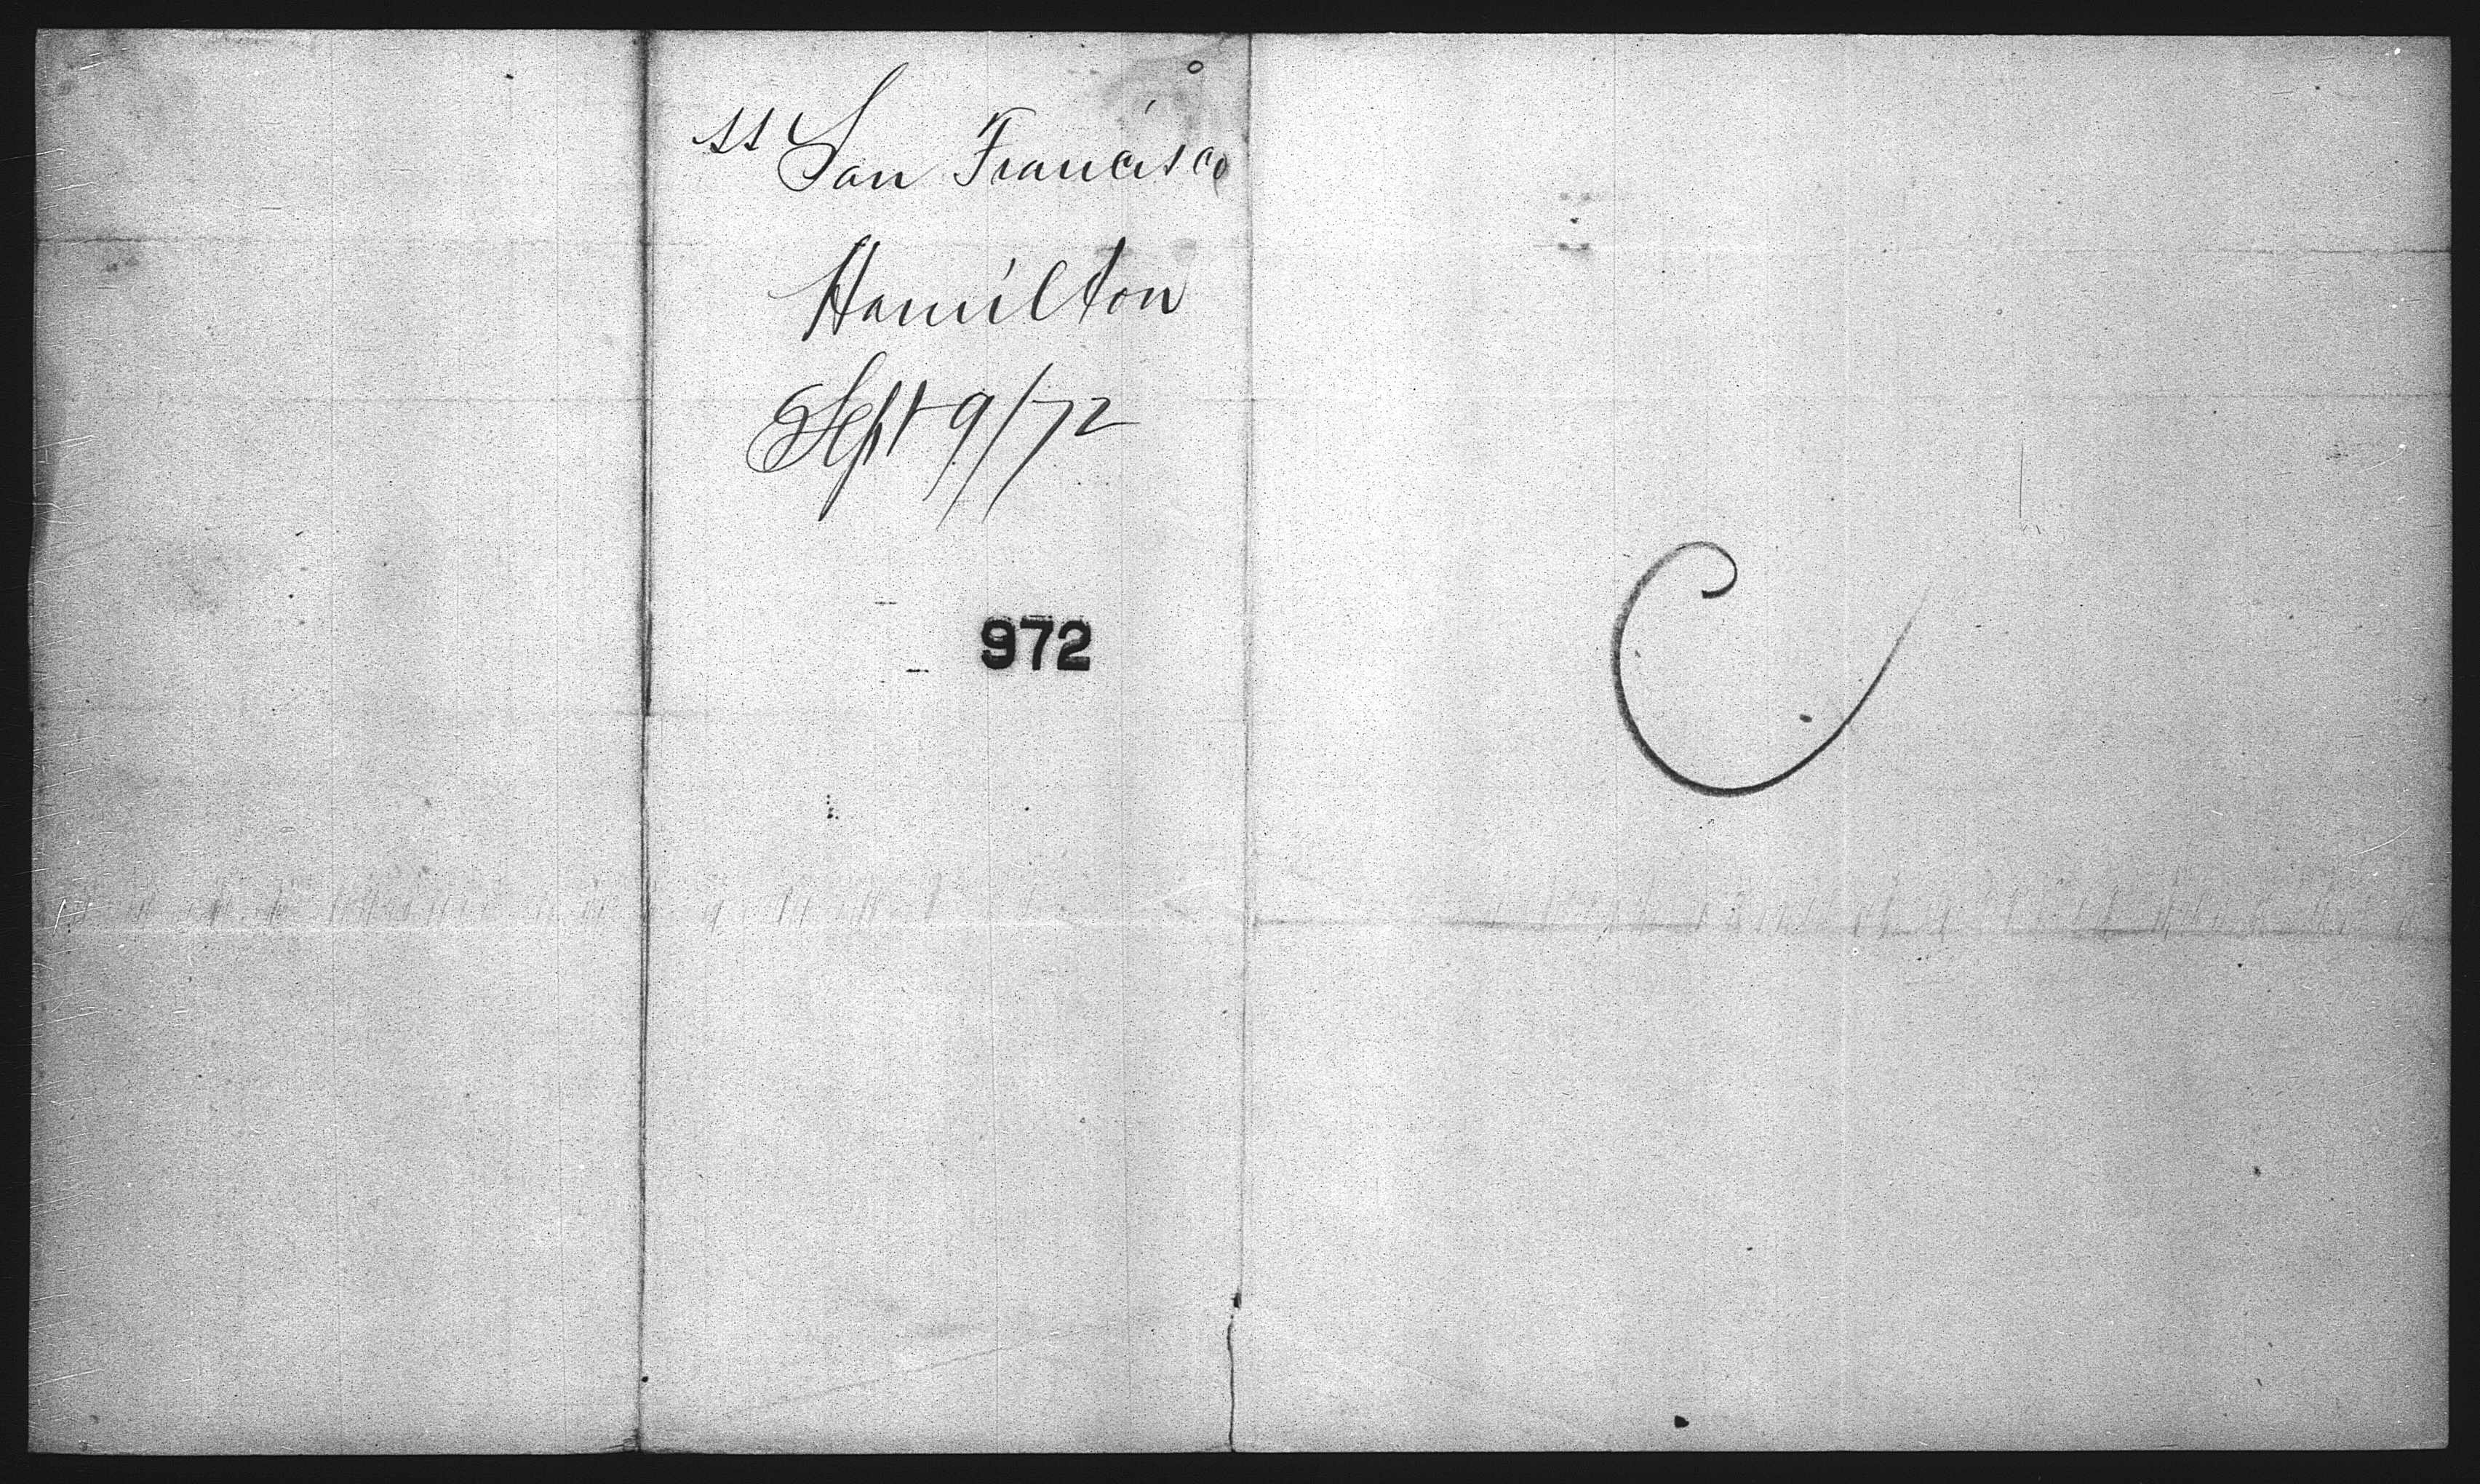 SS San Francisco
Hamilton
Sept 9/72
972
C